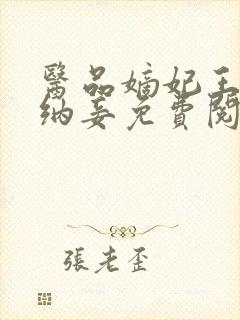 醫品嫡妃王
納妾免費閱
張老歪